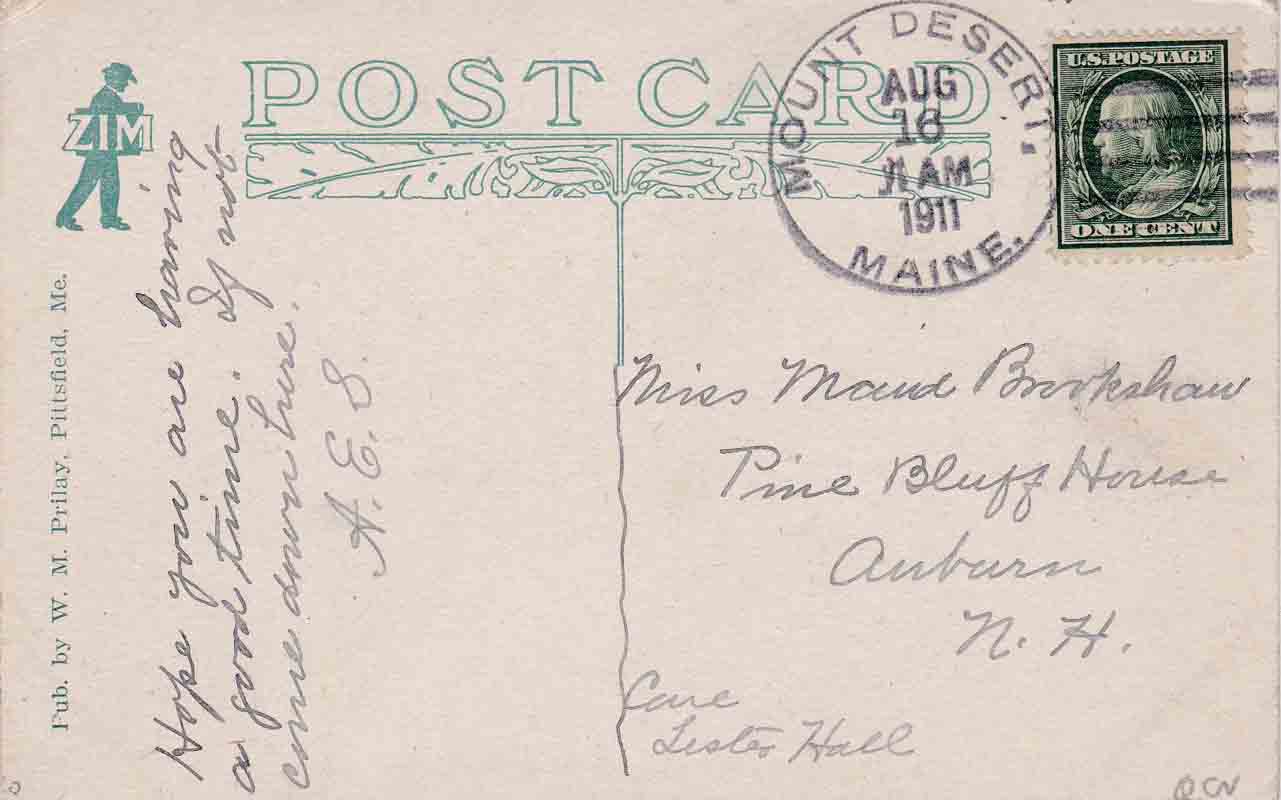 POST CARD
ZIM
Pub. by W. M. Prilay, Pittsfield, Me.
Hope you are having
a good time. If not
come down here.
A. E. S.
MOUNT DESERT,
AUG
16
AM
1911
MAINE.
U.S. POSTAGE
ONE CENT
Miss Maud Brookshaw
Pine Bluff House
Auburn
N. H.
Care
Lester Hall